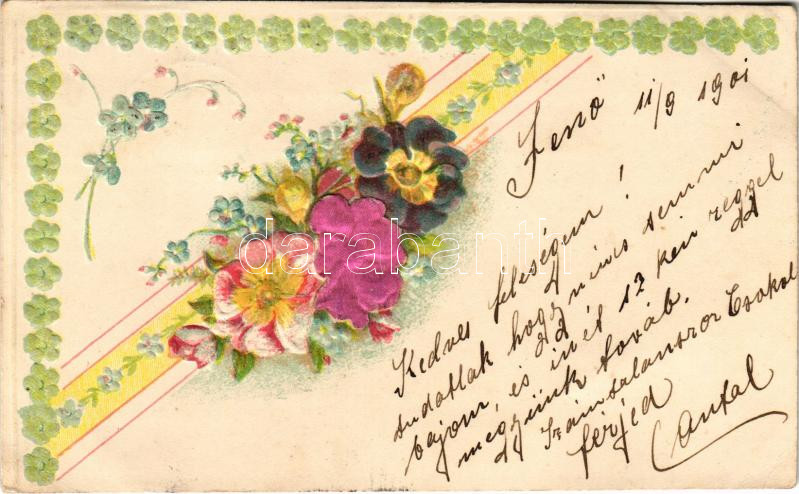 Jenő 11/9 1901
Kedves feleségem!
tudatlak hogy nincs semmi
bajom, és innét 12 kén reggel
megyünk továb.
Számtalanszor Csókol
férjed
Antal
darabanth